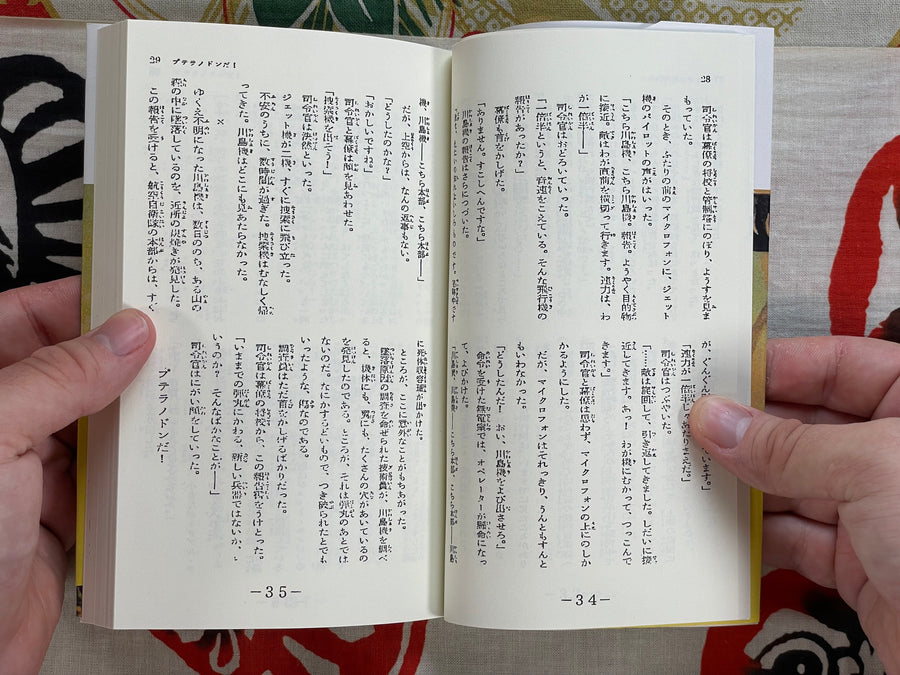 28
司令官は幕僚の将校と管制塔にのぼり、ようすを見ま
もっていた。
そのとき、ふたりの前のマイクロフォンに、ジェット
機のパイロットの声がはいった。
「こちら川島機、こちら川島機、報告。ようやく目的物
に接近。敵はわが直前を横切って行きます。速力は、わ
が一倍半――」
司令官はおどろいていった。
「一倍半というと、音速をこえている。そんな飛行機の
報告があったか?」
「ありません。すこしへんですな。」
幕僚も首をかしげた。
川島機の報告はさらにつづいた。
が、ぐんぐん います。」
「速力が一倍半じゃ、あたりまえだ。」
司令官はつぶやいた。
「……敵は旋回して、引き返してきました。しだいに接
近してきます。あっ! わが機にむかって、つっこんで
きます。」
司令官と幕僚は思わず、マイクロフォンの上にのしか
かるようにした。
だが、マイクロフォンはそれっきり、うんともすんと
もいわなかった。
「どうしたんだ! おい、川島機をよび出させろ。」
命令を受けた無電室では、オペレーターが懸命になっ
て、よびかけた。
「川島機、川島機――こちら本部、こちら本部――川島
―34―
29 プテラノドンだ!
機、川島機――こちら本部、こちら本部――」
だが、上空からは、なんの返事もない。
「どうしたのかな?」
「おかしいですね。」
司令官と幕僚は顔を見あわせた。
「捜索機を出そう!」
司令官は決然といった。
ジェット機が二機、すぐに捜索に飛び立った。
不安のうちに、数時間が過ぎた。捜索機はむなしく帰
ってきた。川島機はどこにも見あたらなかった。
×
ゆくえ不明になった川島機は、数日ののち、ある山の
森の中に墜落しているのを、近所の炭焼きが発見した。
この報告を受けると、航空自衛隊の本部からは、すぐ
に死体収容班が出かけた。
ところが、ここに意外なことがもちあがった。
墜落原因の調査を命ぜられた技術員が、川島機を調べ
ると、機体にも、翼にも、たくさんの穴があいているの
を発見したのである。ところが、それは弾丸のあとでは
ないのだ。なにかするどいもので、つき破られたとでも
いったような、傷なのである。
調査員はただ首をかしげるばかりだった。
司令官は幕僚の将校から、この報告書をうけとった。
「いままでの弾丸にかわる、新しい兵器ではないか、と
いうのか? そんなばかなことが――」
司令官はにがい顔をしていった。
プテラノドンだ!
―35―